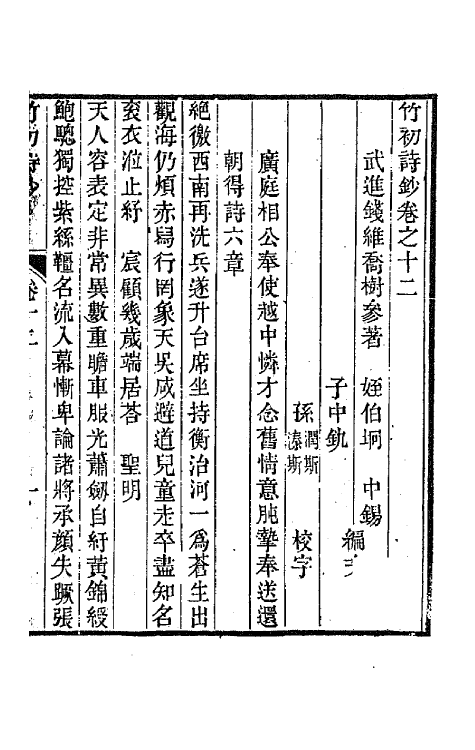 竹初詩鈔卷之十二
武進錢維喬樹參著 姪伯坰 中錫
子中釚 編次
孫潤斯溱斯 校字
廣庭相公奉使越中憐才念舊情意肫摯奉送還
朝得詩六章
絕徼西南再洗兵遂升台席坐持衡治河一爲蒼生出
觀海仍煩赤舄行罔象天吳咸避道兒童走卒盡知名
袞衣涖止紓 宸顧幾歲端居荅 聖明
天人容表定非常異數重瞻車服光蕭劒自紆黃錦綬
鮑驄獨控紫絲韁名流入幕慚卑論諸將承顏失蹶張
竹初詩鈔 卷十二 一